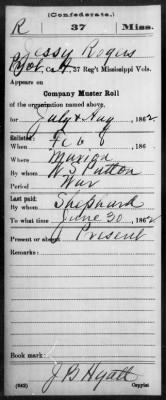 (Confederate.)
R 37 Miss.
Jessy Rogers
Pvt. Co. H, 37 Reg't Mississippi Vols.
Appears on
Company Muster Roll
of the organization named above,
for July & Aug, 1862
Enlisted:
When Feb 6, 186
Where Marion
By whom W. S. Patton
Period War
Last paid:
By whom Shephard
To what time June 30, 1862
Present or absent Present
Remarks:
Book mark:
J B Hyatt
(642) Copyist